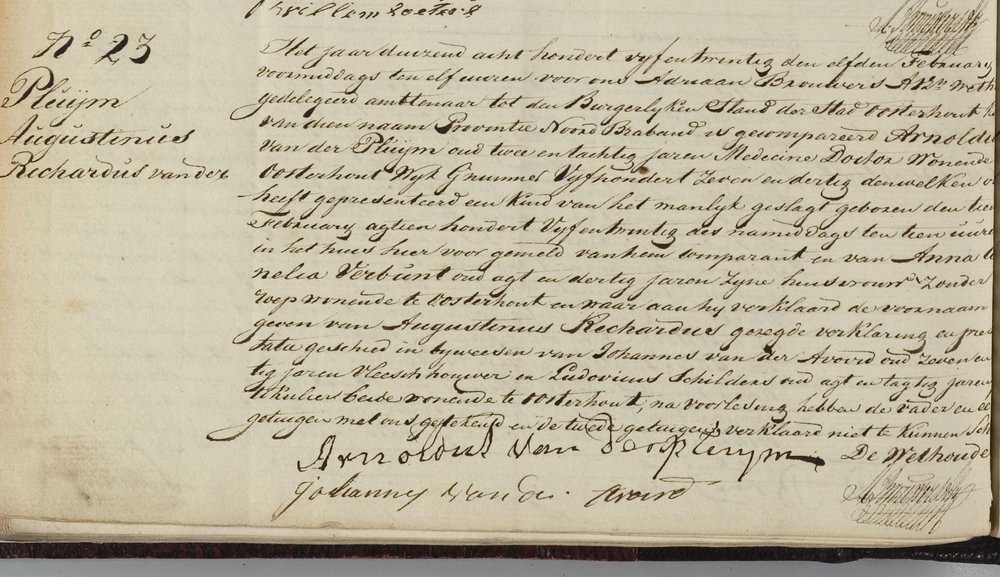 willem
No 23
Pluijm
Augustinus
Richardus van der
Het jaar duizend acht hondert vyf entwintig den elfden February
voormiddags ten elf uuren voor ons Adriaan Brouwers Azn weth
gedelegeerd ambtenaar tot den Burgerlyken Stand der Stad Oosterhout
van dien naam Provintie Noord Braband is gecompareerd Arnoldu
van der Pluijm oud twee en tachtig jaren Medecine Doctor Wonende
Oosterhout Wyk Grummel Vyfhondert Zeven en dertig denwelken o
heeft gepresenteerd een Kind van het manlyk geslagt geboren den tien
February agtien hondert Vyf entwintig des namiddags ten tien uure
in het huis hier voor gemeld van hem Comparant en van Anna Co
nelia Verbunt oud agt en dertig jaren Zyne huisvrouw Zonder
roep wonende te Oosterhout en waar aan hij verklaard de voornaam
geven van Augustinus Richardus gezegde verklaring en pre
tatie geschied in byweesen van Johannes van der Avoird oud Zeven en
tig jaren Vleeschhouwer en Ludovicus Schilders oud agt en tagtig jaren
tikulier beide wonende te Oosterhout; na voorlesing hebben de vader en ee
getuigen met ons getekend en de tweede getuigen verklaard niet te kunnen sch
De Wethoude
Arnoldus Van der Pluijm
Johannes van der Avoird